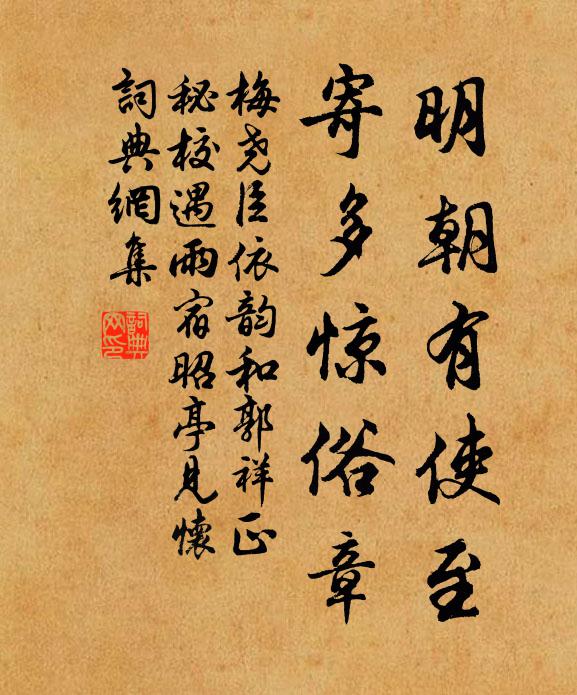 明朝有使至
寄多惊俗章
梅尧臣依韵和郭祥正
秘校遇雨宿昭亭見懷
詞典網集
詞典網印